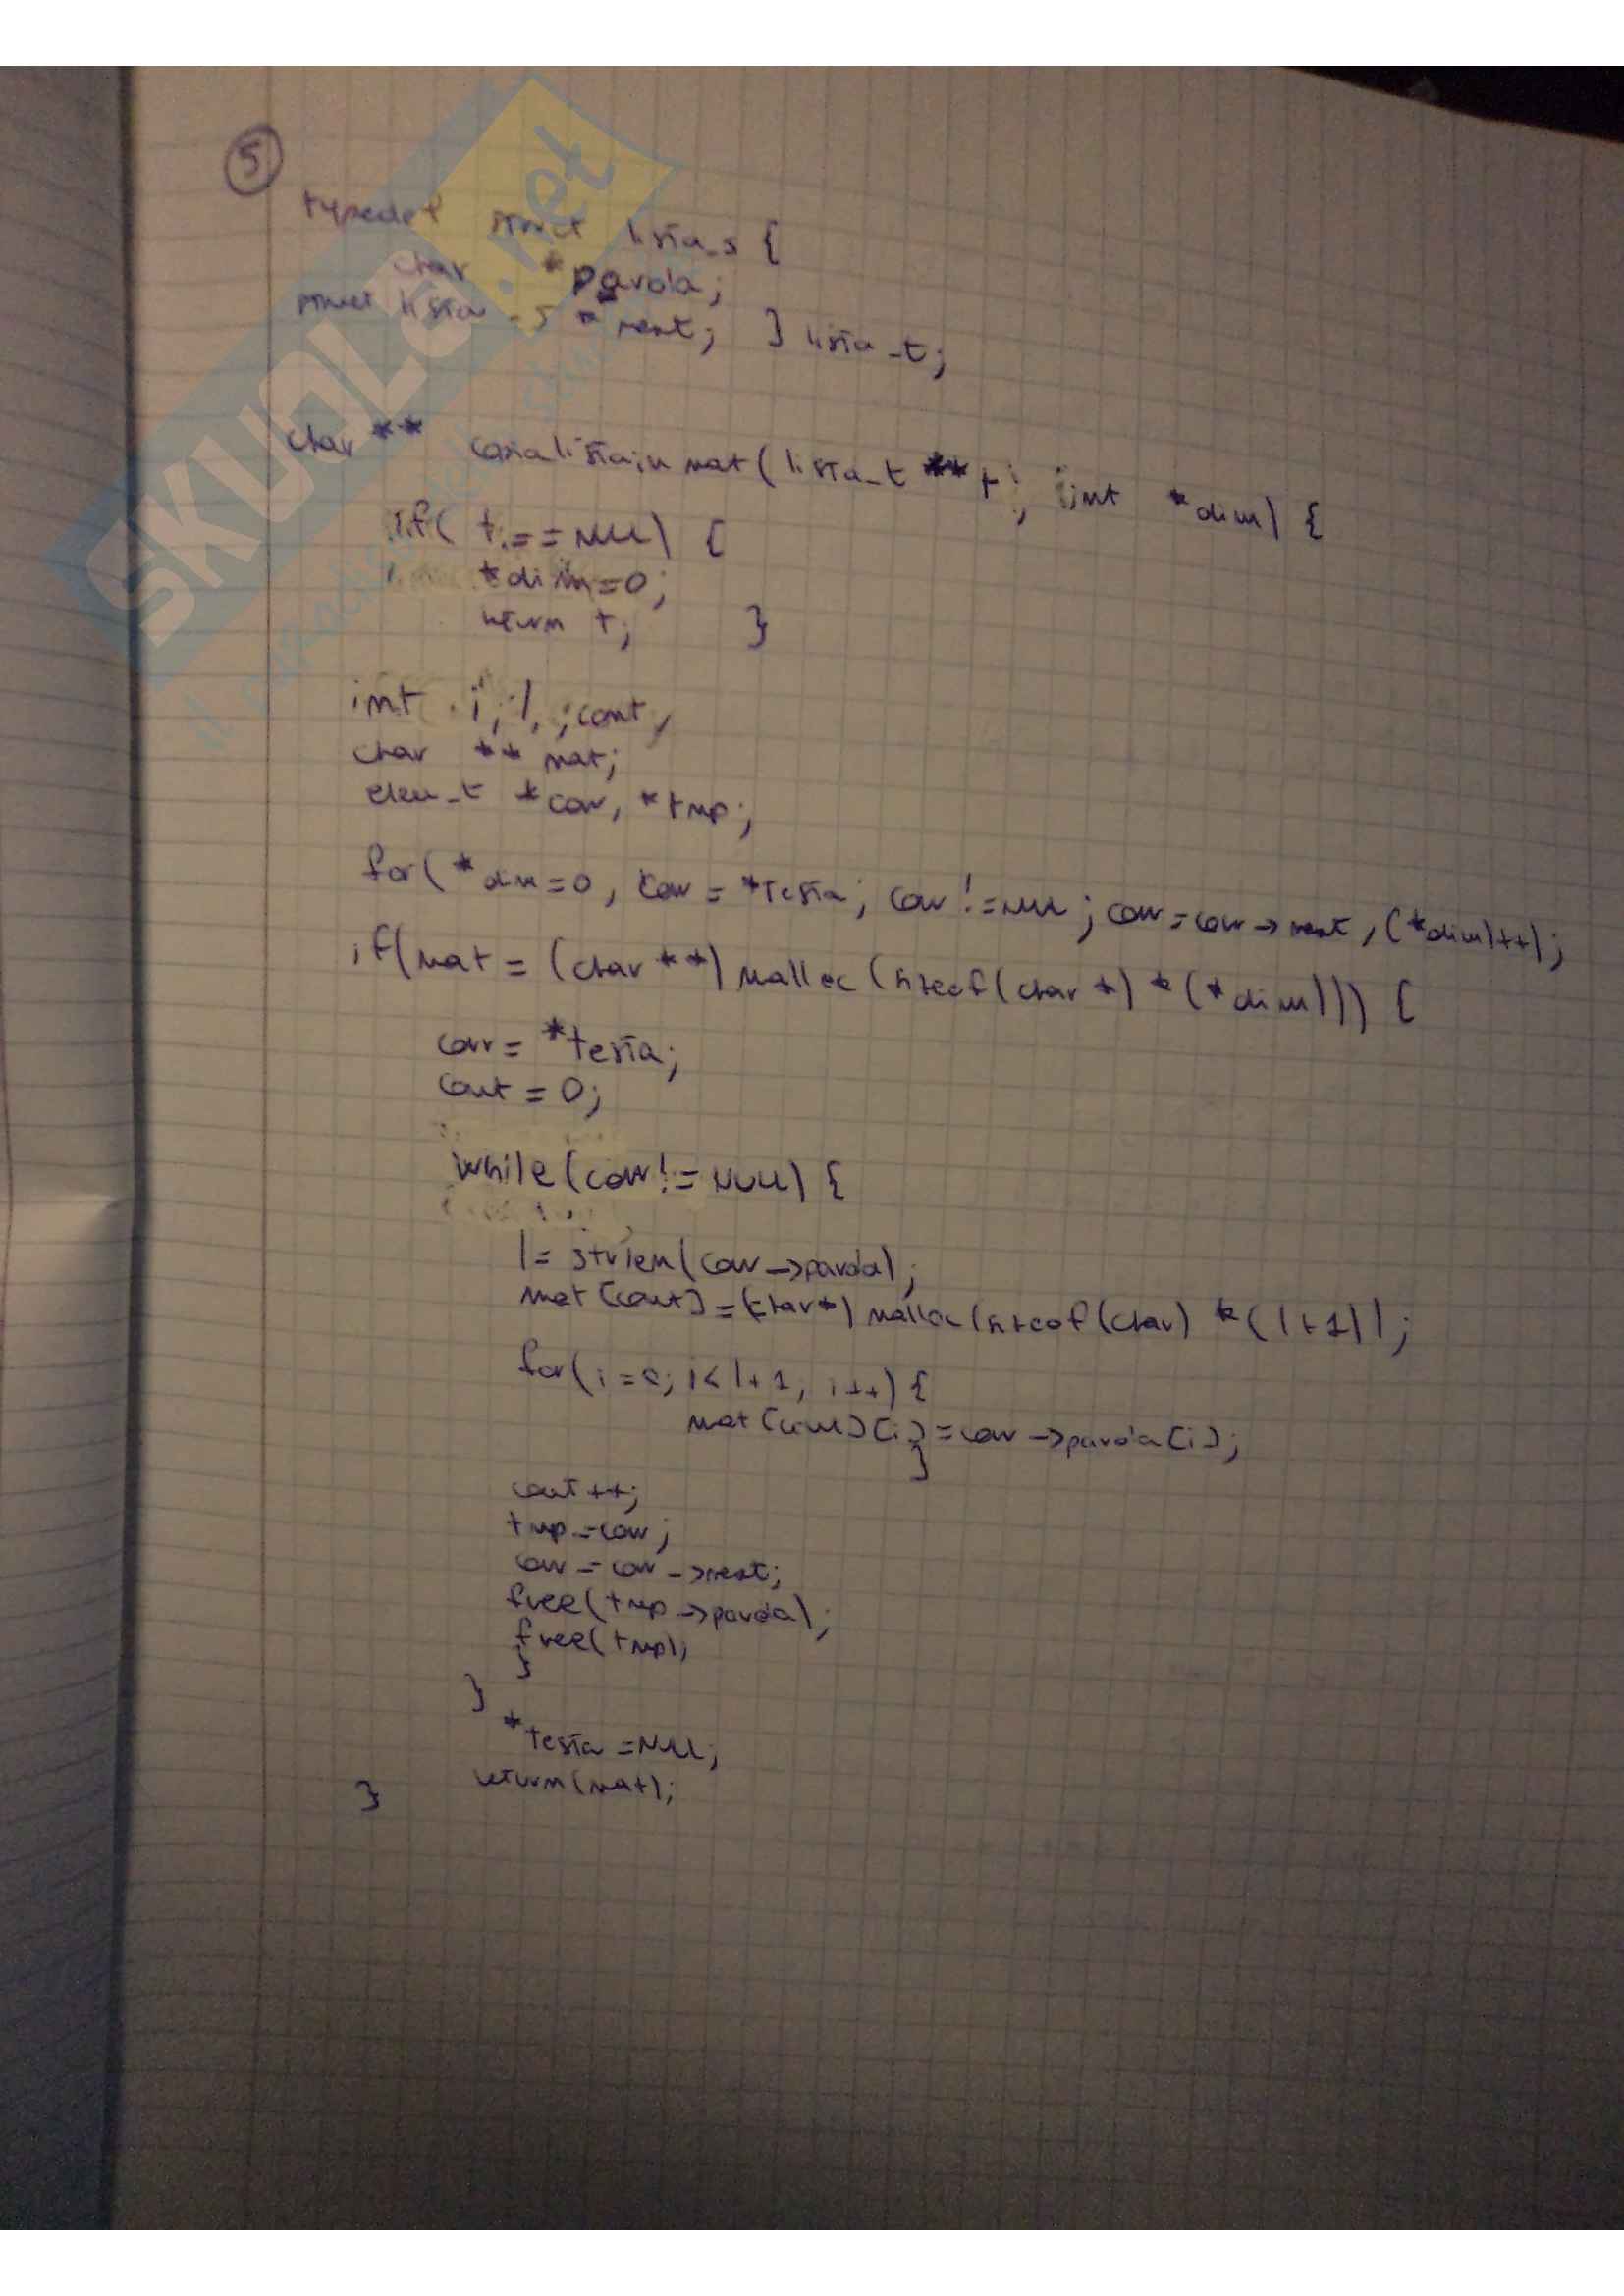 5
typedef struct lista_s {
char *parola;
struct lista_s *next; } lista_t;
char ** copialistainmat(lista_t **t, int *dim) {
if( t == NULL) {
*dim=0;
return t; }
int i, l, cont,
char ** mat;
elem_t *corr, *tmp;
for(*dim=0, corr = *testa; corr != NULL; corr = corr->next, (*dim)++);
if(mat = (char **) malloc (sizeof(char *) * (*dim))) {
corr = *testa;
cont = 0;
while(corr != NULL) {
l = strlen(corr->parola);
mat[cont] = (char*) malloc(sizeof(char) * (l+1));
for(i=0; i<l+1, i++) {
mat[cont][i] = corr->parola[i];
}
cont++;
tmp = corr;
corr = corr->next;
free(tmp->parola);
free(tmp);
}
}
*testa = NULL;
return(mat);
}
SKUOLA.net
il paradiso dello studente